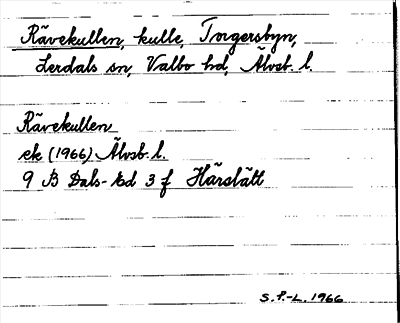 Rävekullen, kulle, Torgersbyn,
Lerdals sn, Valbo hd, Älvsb. l.
Rävekullen
ek (1966) Älvsb. l.
9 B Dals-Ed 3 f Härslätt
S.F.-L. 1966